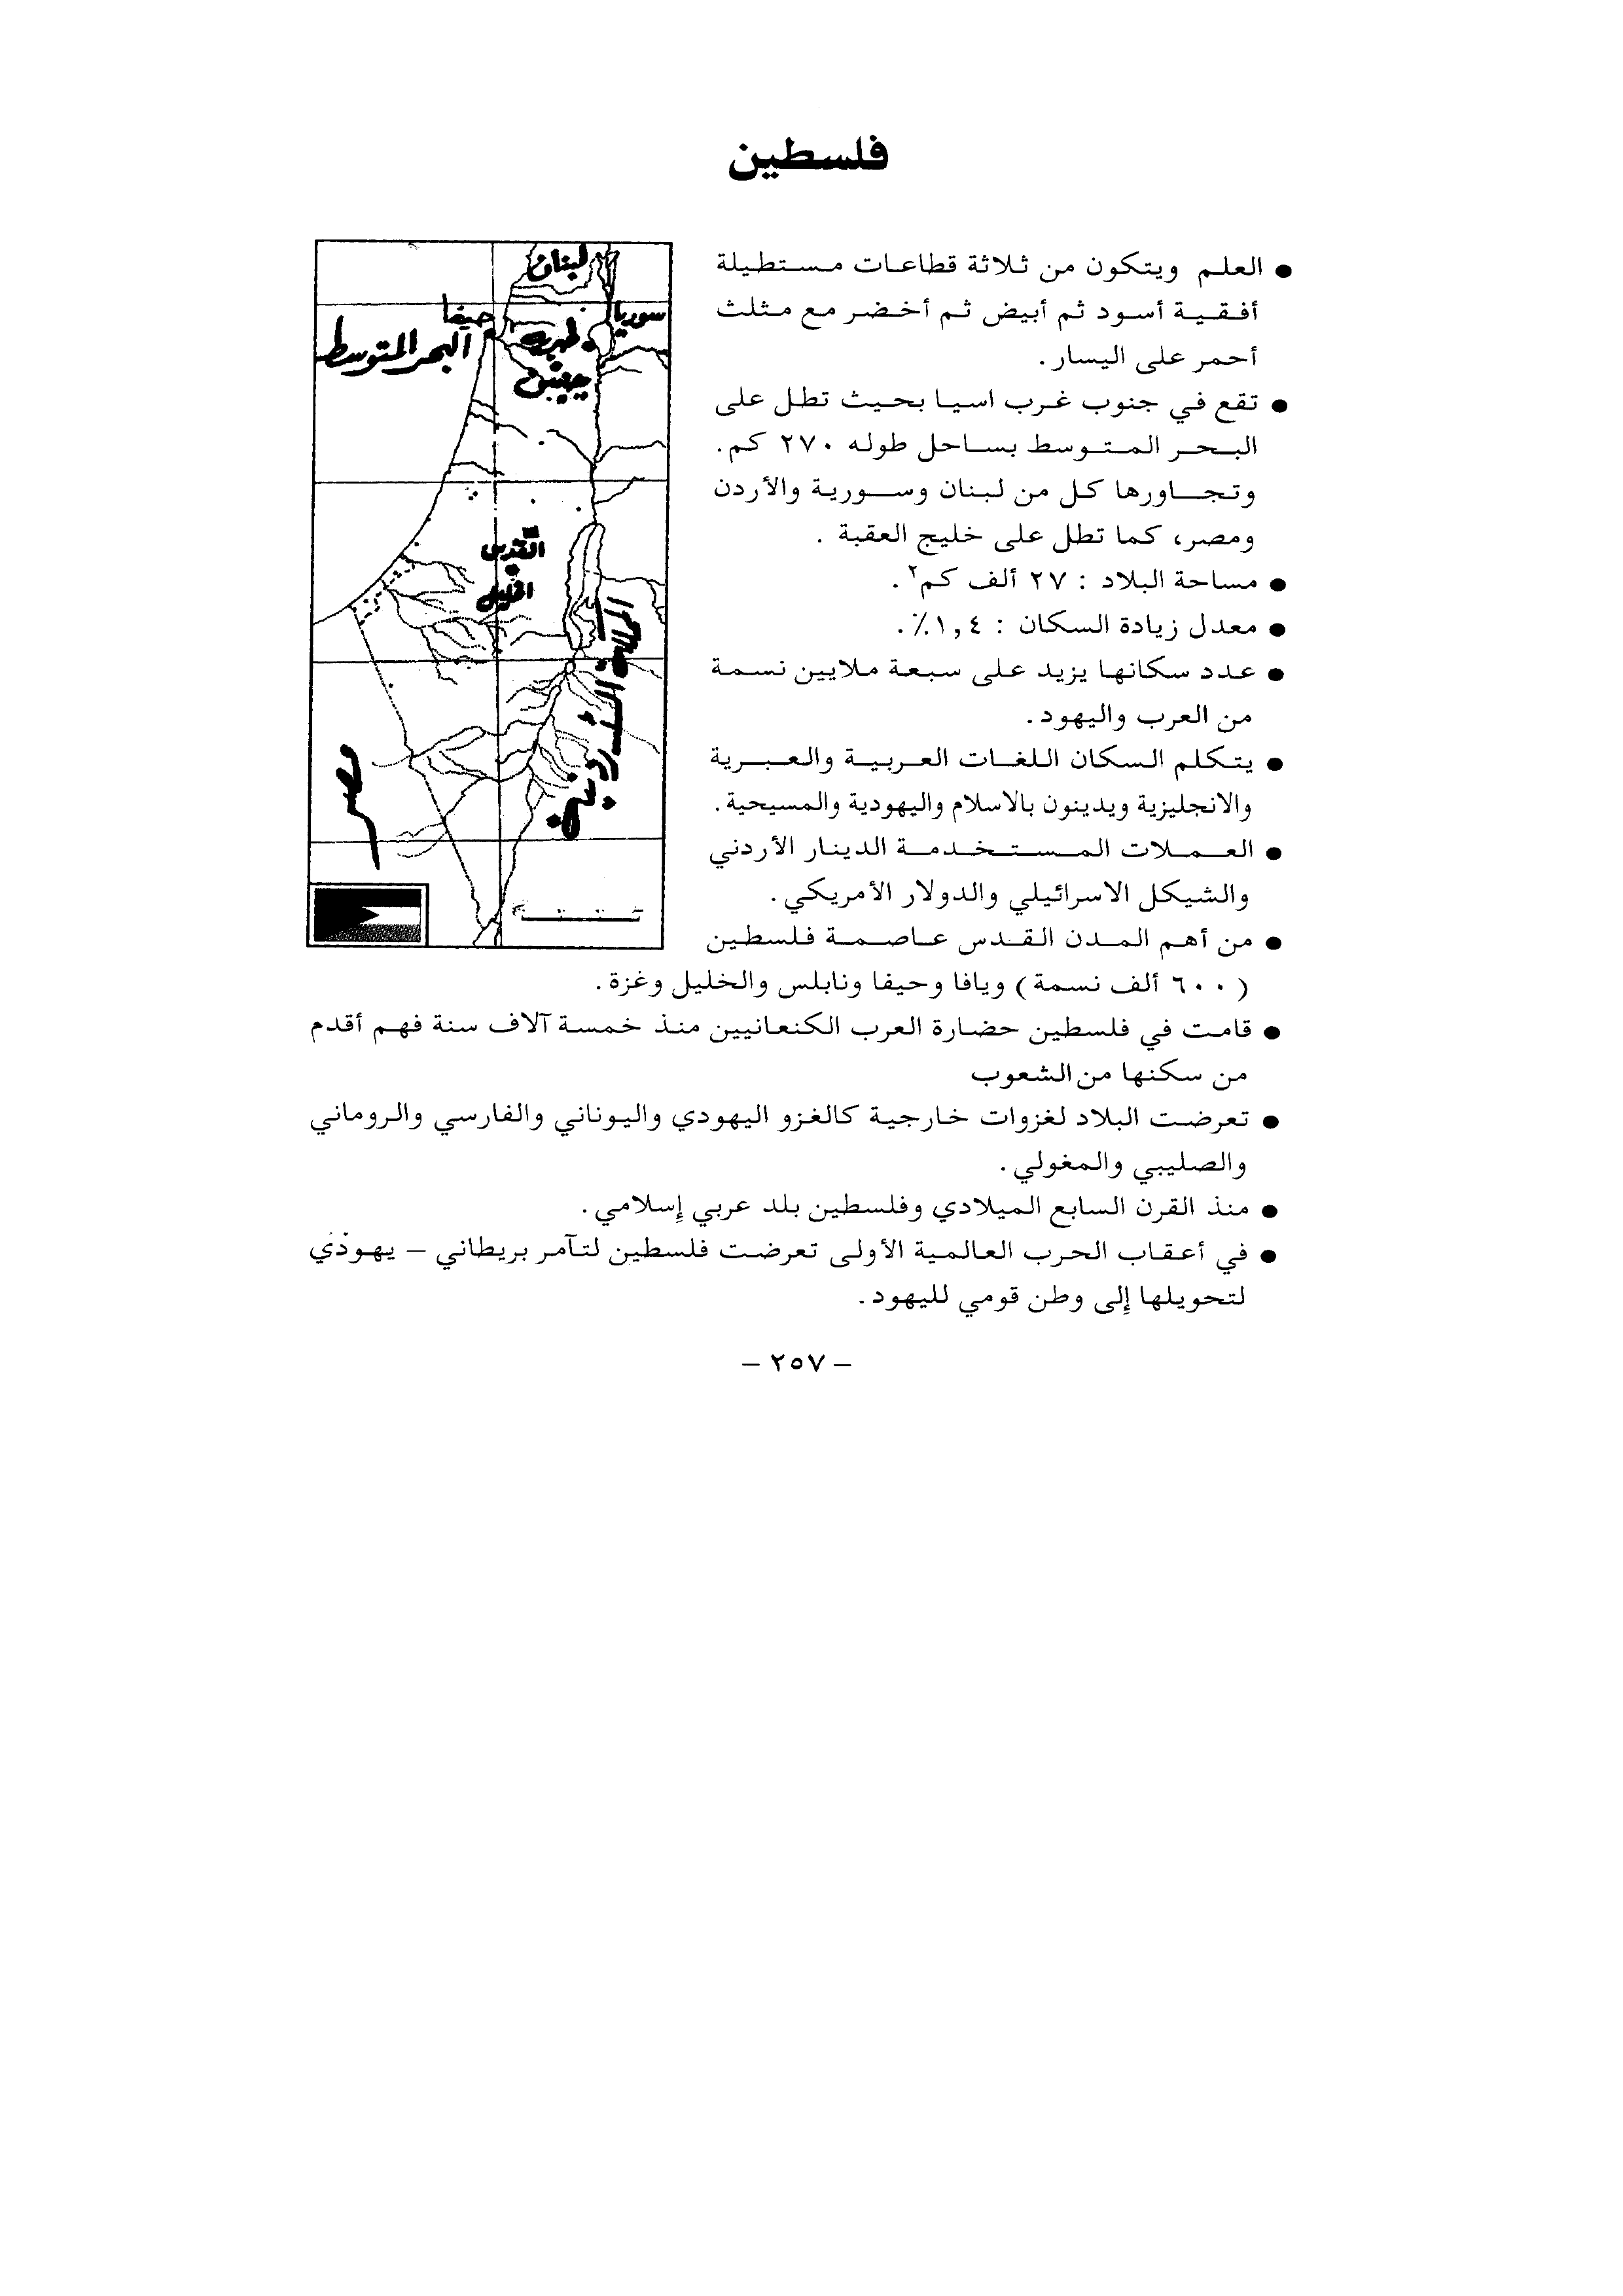 فلسطين
● العلم ويتكون من ثلاثة قطاعات مستطيلة
أفقية أسود ثم أبيض ثم أخضر مع مثلث
أحمر على اليسار.
● تقع في جنوب غرب اسيا بحيث تطل على
البحر المتوسط بساحل طوله ٢٧٠ كم.
وتجاورها كل من لبنان وسورية والأردن
ومصر، كما تطل على خليج العقبة .
● مساحة البلاد : ٢٧ ألف كم٢.
● معدل زيادة السكان : ١,٤٪.
● عدد سكانها يزيد على سبعة ملايين نسمة
من العرب واليهود.
● يتكلم السكان اللغات العربية والعبرية
والانجليزية ويدينون بالاسلام واليهودية والمسيحية.
● العملات المستخدمة الدينار الأردني
والشيكل الاسرائيلي والدولار الأمريكي.
● من أهم المدن القدس عاصمة فلسطين
(٦٠٠ ألف نسمة) ويافا وحيفا ونابلس والخليل وغزة.
● قامت في فلسطين حضارة العرب الكنعانيين منذ خمسة آلاف سنة فهم أقدم
من سكنها من الشعوب
● تعرضت البلاد لغزوات خارجية كالغزو اليهودي واليوناني والفارسي والروماني
والصليبي والمغولي.
● منذ القرن السابع الميلادي وفلسطين بلد عربي إسلامي.
● في أعقاب الحرب العالمية الأولى تعرضت فلسطين لتآمر بريطاني – يهودي
لتحويلها إلى وطن قومي لليهود.
لبنان
سوريا
حيفا
البحر المتوسط
جنين
القدس
الخليل
مصر
– ٢٥٧ –